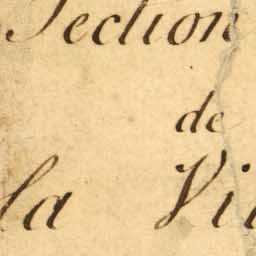 Section
de
la Vi